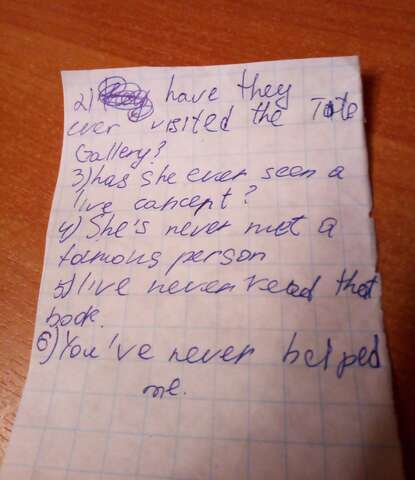 2) have they
ever visited the Tate
Gallery?
3) has she ever seen a
live concept?
4) She's never met a
famous person
5) I've never read that
book.
6) You've never helped
me.